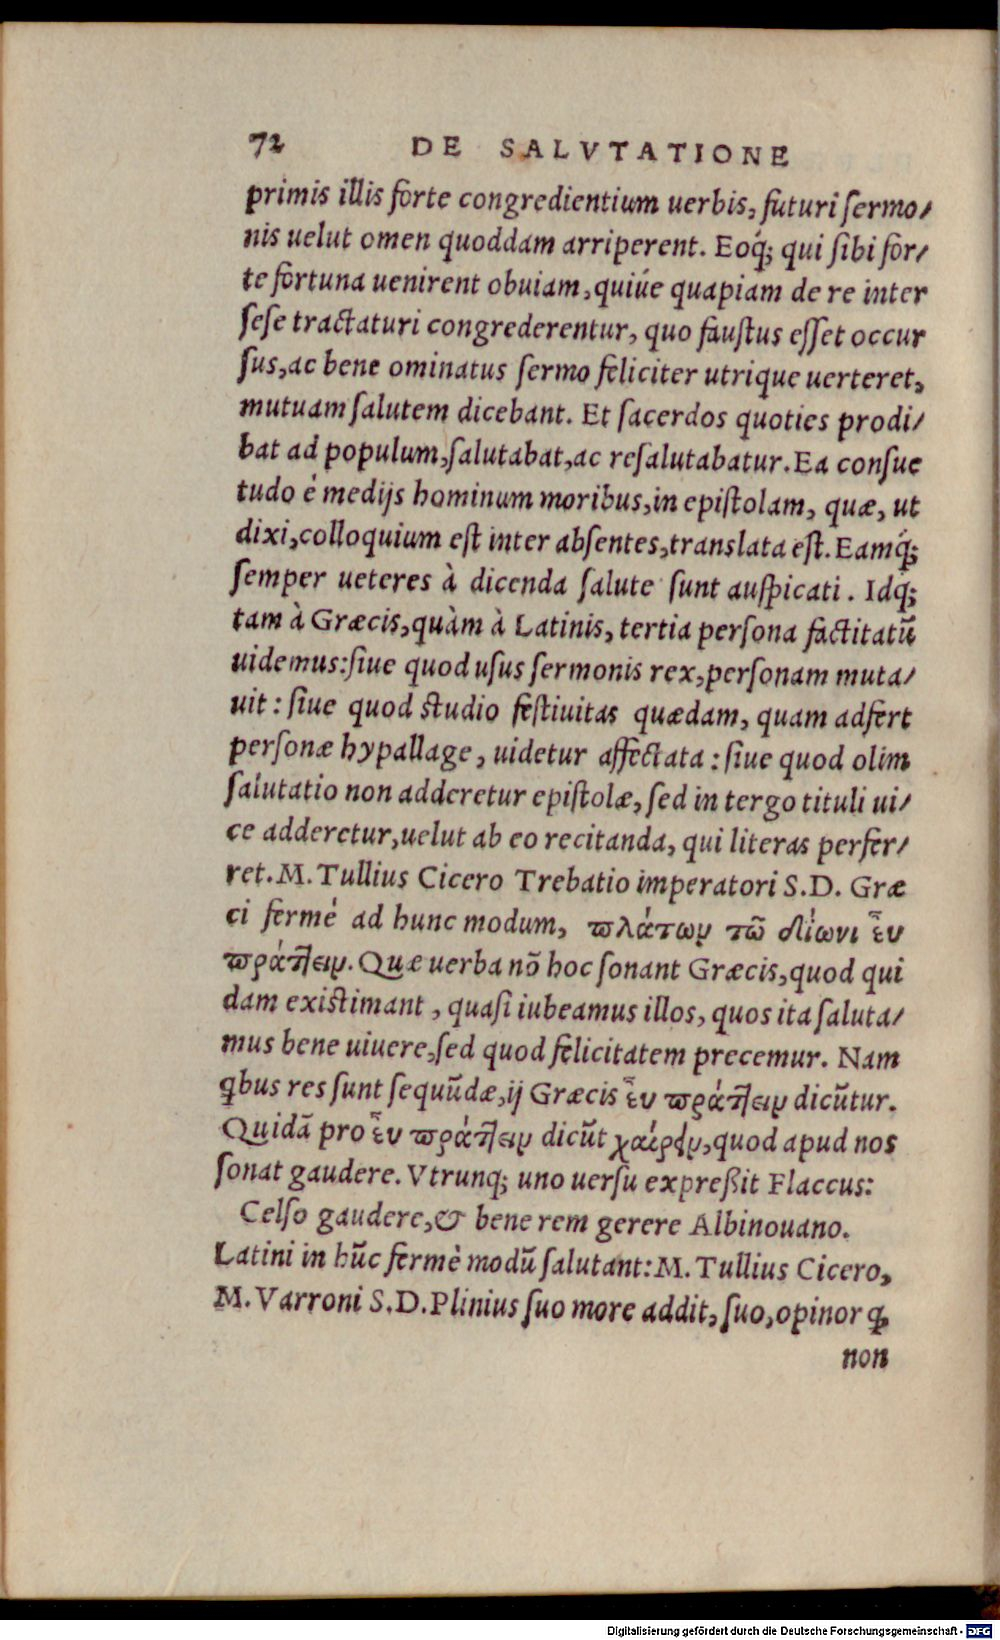 72 DE SALVTATIONE
primis illis forte congredientium uerbis, futuri ſermo/
nis uelut omen quoddam arriperent. Eoq́; qui ſibi for/
te fortuna uenirent obuiam, quiúe quapiam de re inter
ſeſe tractaturi congrederentur, quo fauſtus eſſet occur
ſus, ac bene ominatus ſermo feliciter utrique uerteret,
mutuam ſalutem dicebant. Et ſacerdos quoties prodi/
bat ad populum, ſalutabat, ac reſalutabatur. Ea conſue
tudo é medijs hominum moribus, in epiſtolam, quæ, ut
dixi, colloquium eſt inter abſentes, translata eſt. Eamq́;
ſemper ueteres à dicenda ſalute ſunt auſpicati. Idq́;
tam à Græcis, quàm à Latinis, tertia perſona factitatũ
uidemus: ſiue quod uſus ſermonis rex, perſonam muta/
uit: ſiue quod ſtudio feſtiuitas quædam, quam adfert
perſonæ hypallage, uidetur affectata: ſiue quod olim
ſalutatio non adderetur epiſtolæ, ſed in tergo tituli ui/
ce adderetur, uelut ab eo recitanda, qui literas perfer/
ret. M. Tullius Cicero Trebatio imperatori S.D. Græ
ci fermé ad hunc modum, πλάτων τῶ δίωνι ἒυ
πράτ]ειν. Quæ uerba nõ hoc ſonant Græcis, quod qui
dam exiſtimant, quaſi iubeamus illos, quos ita ſaluta/
mus bene uiuere, ſed quod felicitatem precemur. Nam
qbus res ſunt ſequũdæ, ij Græcis ἒυ πράτ]ειν dicũtur.
Quidã pro ἒυ πράτ]ειν dicũt χαίρειν, quod apud nos
ſonat gaudere. Vtrunq; uno uerſu expreßit Flaccus:
Celſo gaudere, & bene rem gerere Albinouano.
Latini in hũc fermè modũ ſalutant: M. Tullius Cicero,
M. Varroni S.D. Plinius ſuo more addit, ſuo, opinor ꝙ
non
Digitalisierung gefördert durch die Deutsche Forschungsgemeinschaft - DFG